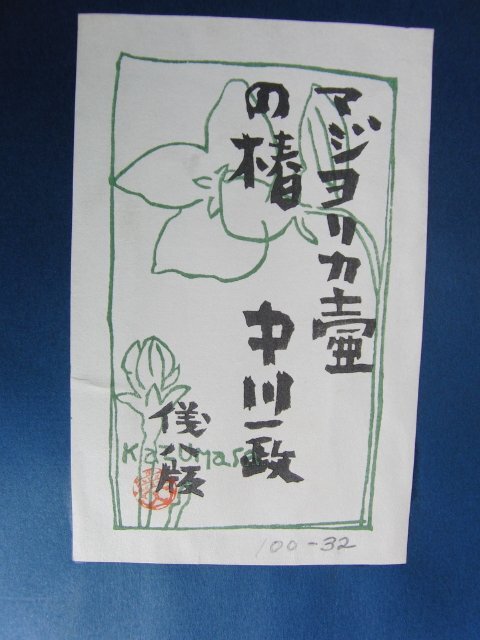 マジヨリカ壷
の椿
中川一政
侟版
Kazumasa
100-32